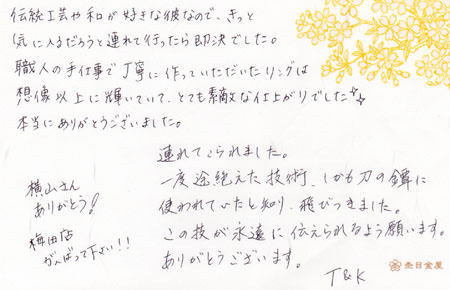 伝統工芸や和が好きな彼なので、きっと
気に入るだろうと連れて行ったら即決でした。
職人の手仕事で丁寧に作っていただいたリングは
想像以上に輝いていて、とても素敵な仕上がりでした
本当にありがとうございました。
連れてこられました。
一度途絶えた技術、しかも刀の鐔に
使われていたと知り、飛びつきました。
この技が永遠に伝えられるよう願います。
ありがとうございます。
T&K
横山さん
ありがとう!
梅田店
がんばって下さい!!
杢目金屋